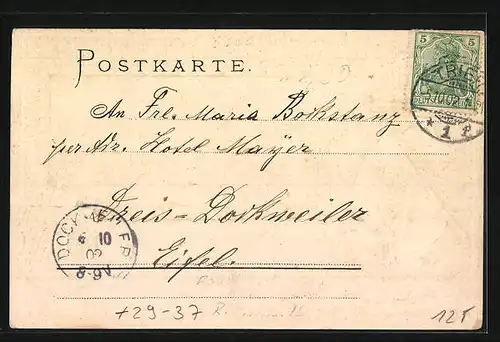 POSTKARTE.
5 5
TRIER
* 1 f
An Frl. Maria Bockstanz
per Adr. Hotel Mayer
Dreis-Dockweiler
Eifel.
DOCKWEILER
6 10
8-9V
+29-37
12f